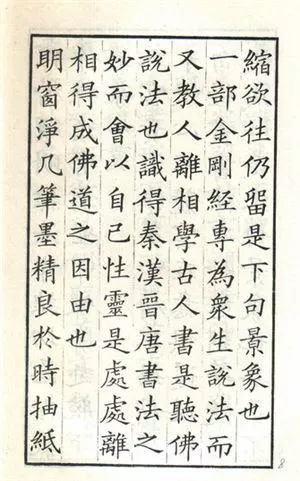 縮欲往仍留是下句景象也
一部金剛經專為衆生說法而
又教人離相學古人書是聽佛
說法也識得秦漢晉唐書法之
妙而會以自己性靈是處處離
相得成佛道之因由也
明窗淨几筆墨精良於時抽紙
8